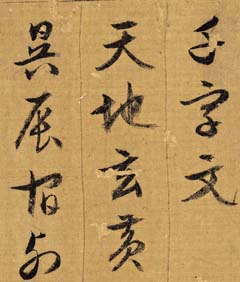 千字文
天地玄黄
昃辰宿列